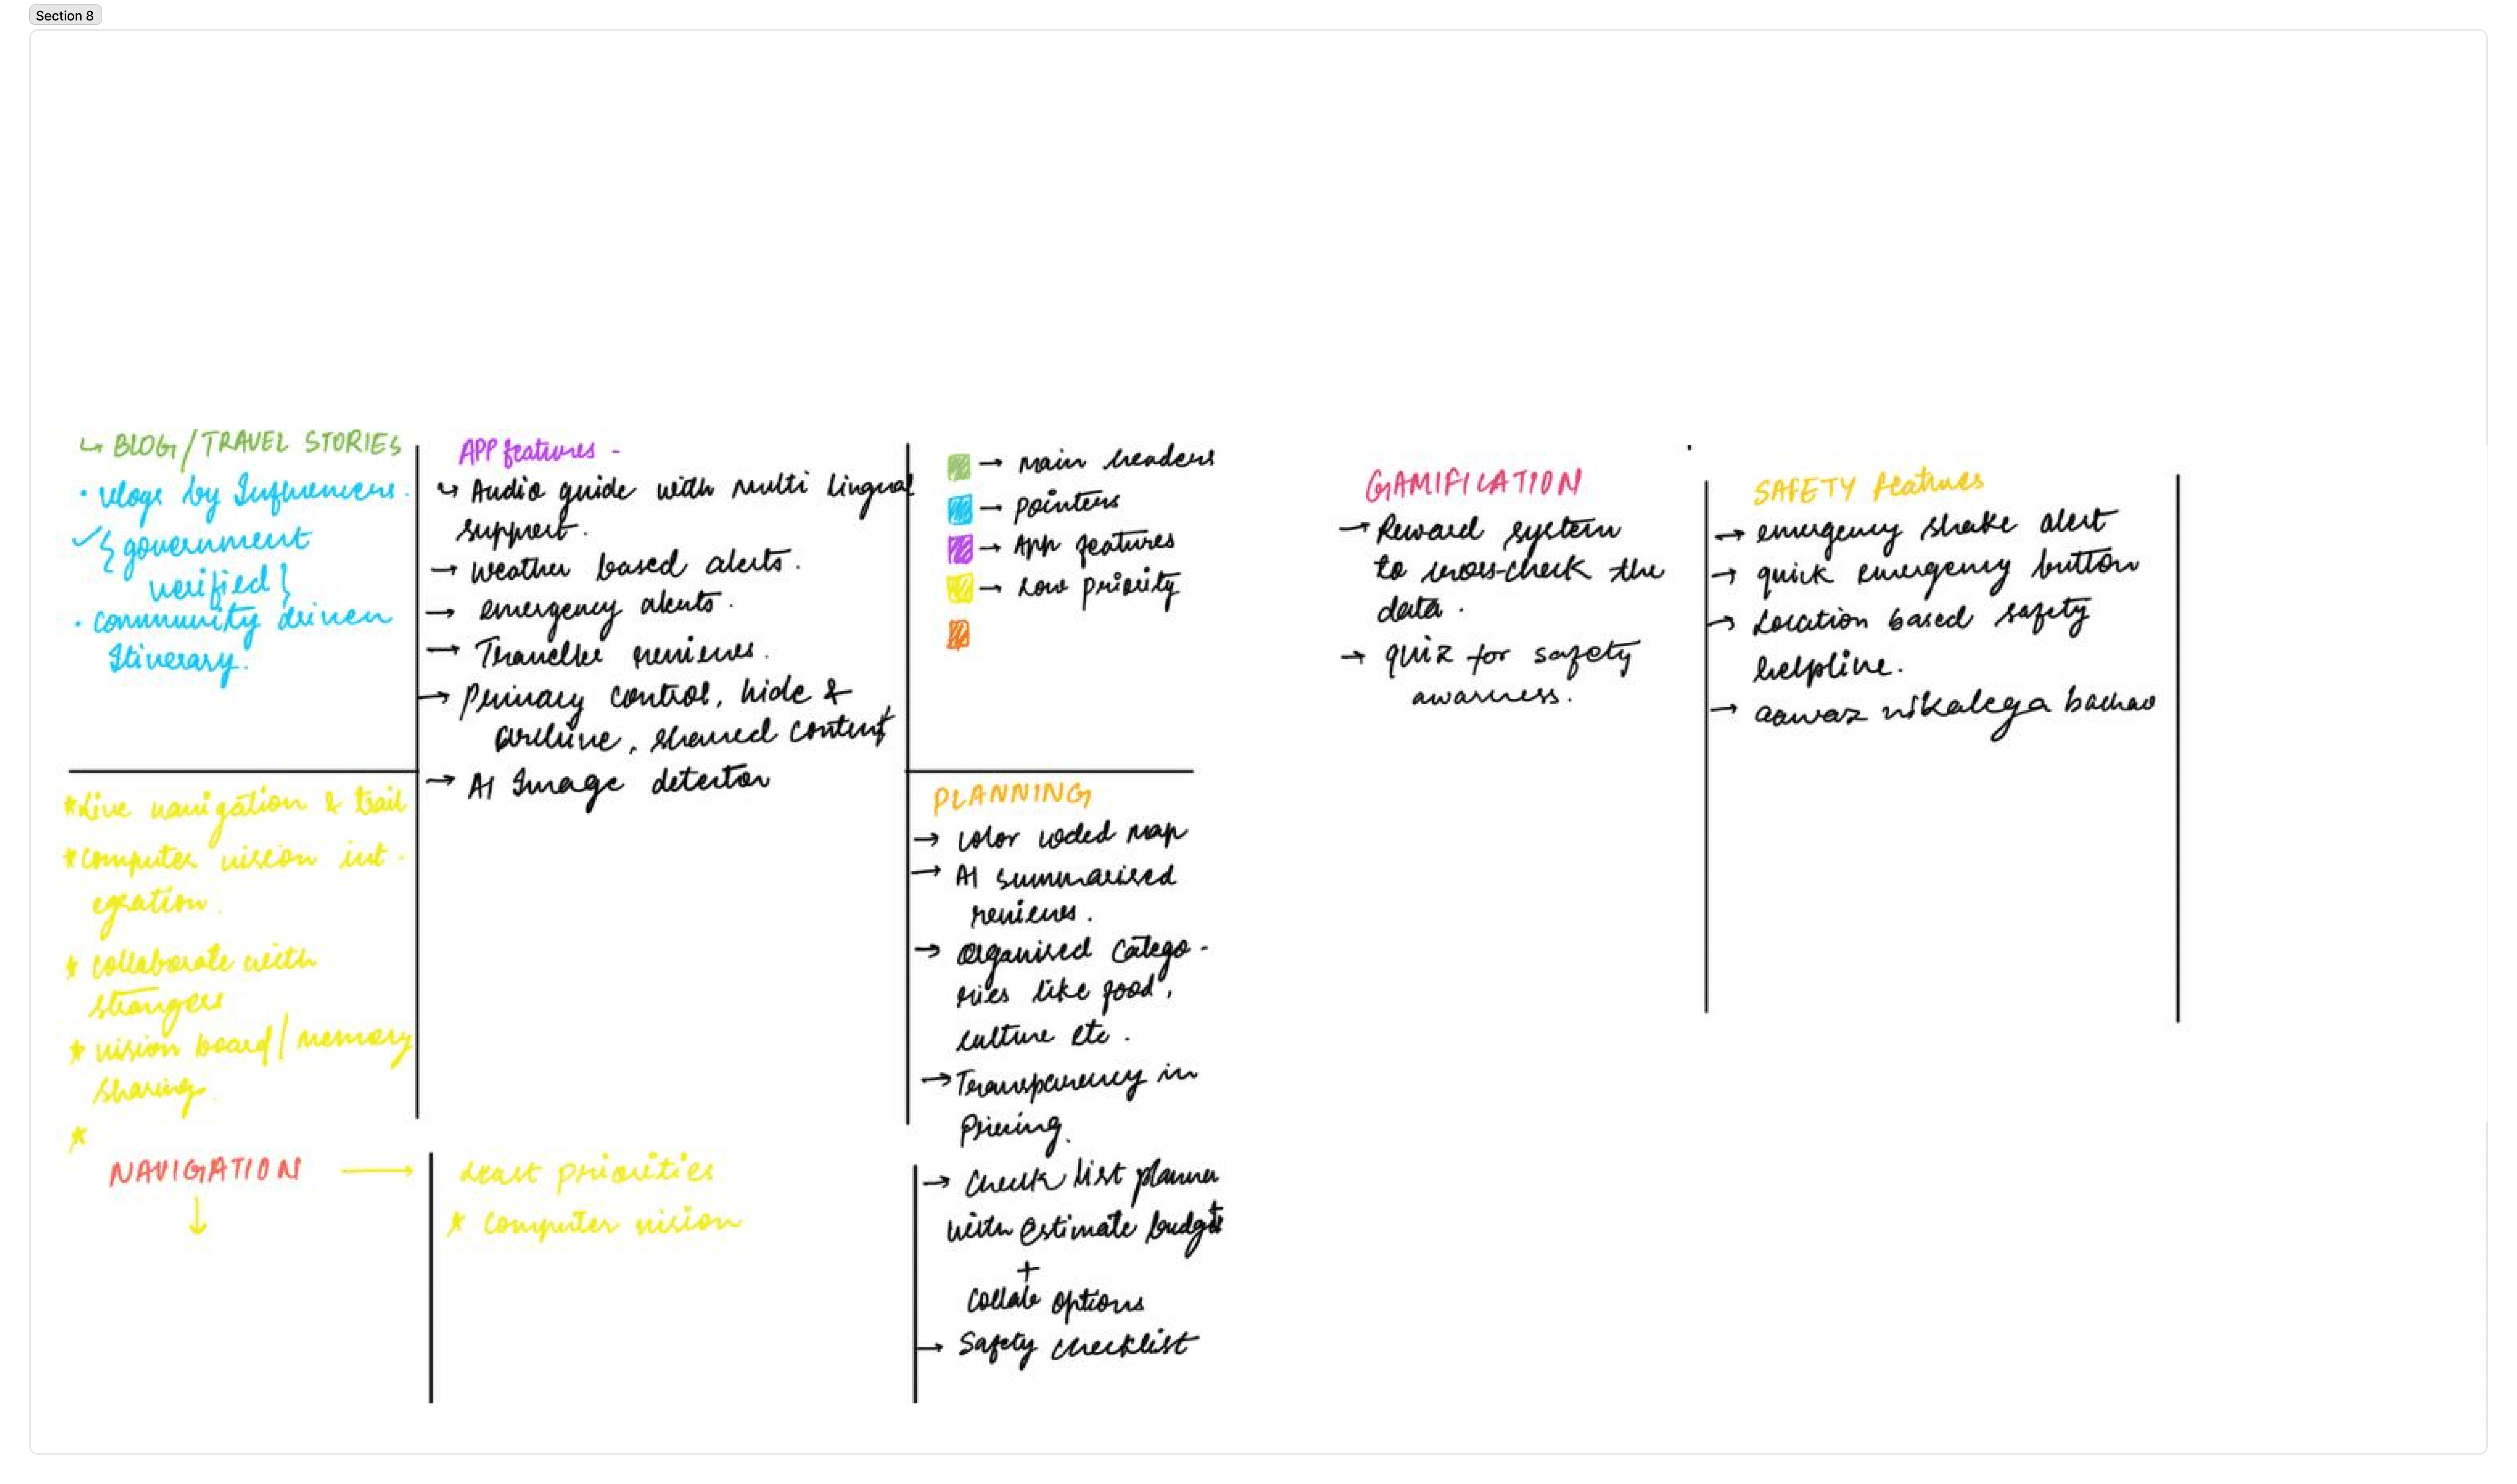 Section 8
↳ BLOG/TRAVEL STORIES
• vlogs by Influencers.
✓{government
verified}
• community driven
Itinerary.
APP features -
↳ Audio guide with multi lingual
support.
→ weather based alerts.
→ emergency alerts.
→ Traveller reviews.
→ privacy control, hide &
archive, shared content
→ AI Image detector
→ main headers
→ pointers
→ App features
→ Low priority
GAMIFICATION
→ Reward system
to cross-check the
data.
→ quiz for safety
awarness.
SAFETY features
→ emergency shake alert
→ quick emergency button
→ Location based safety
helpline.
→ aawaz nikalega bachao
*Live navigation & trail
*computer vision int-
egration.
* collaborate with
strangers
* vision board/memory
sharing.
*
PLANNING
→ color coded map
→ AI summarised
reviews.
→ Organised catego-
ries like food,
culture etc.
→ Transparency in
Pricing.
→ Check list planner
with estimate budget
+
collab options
→ Safety checklist
NAVIGATION →
↓
Least priorities
* computer vision